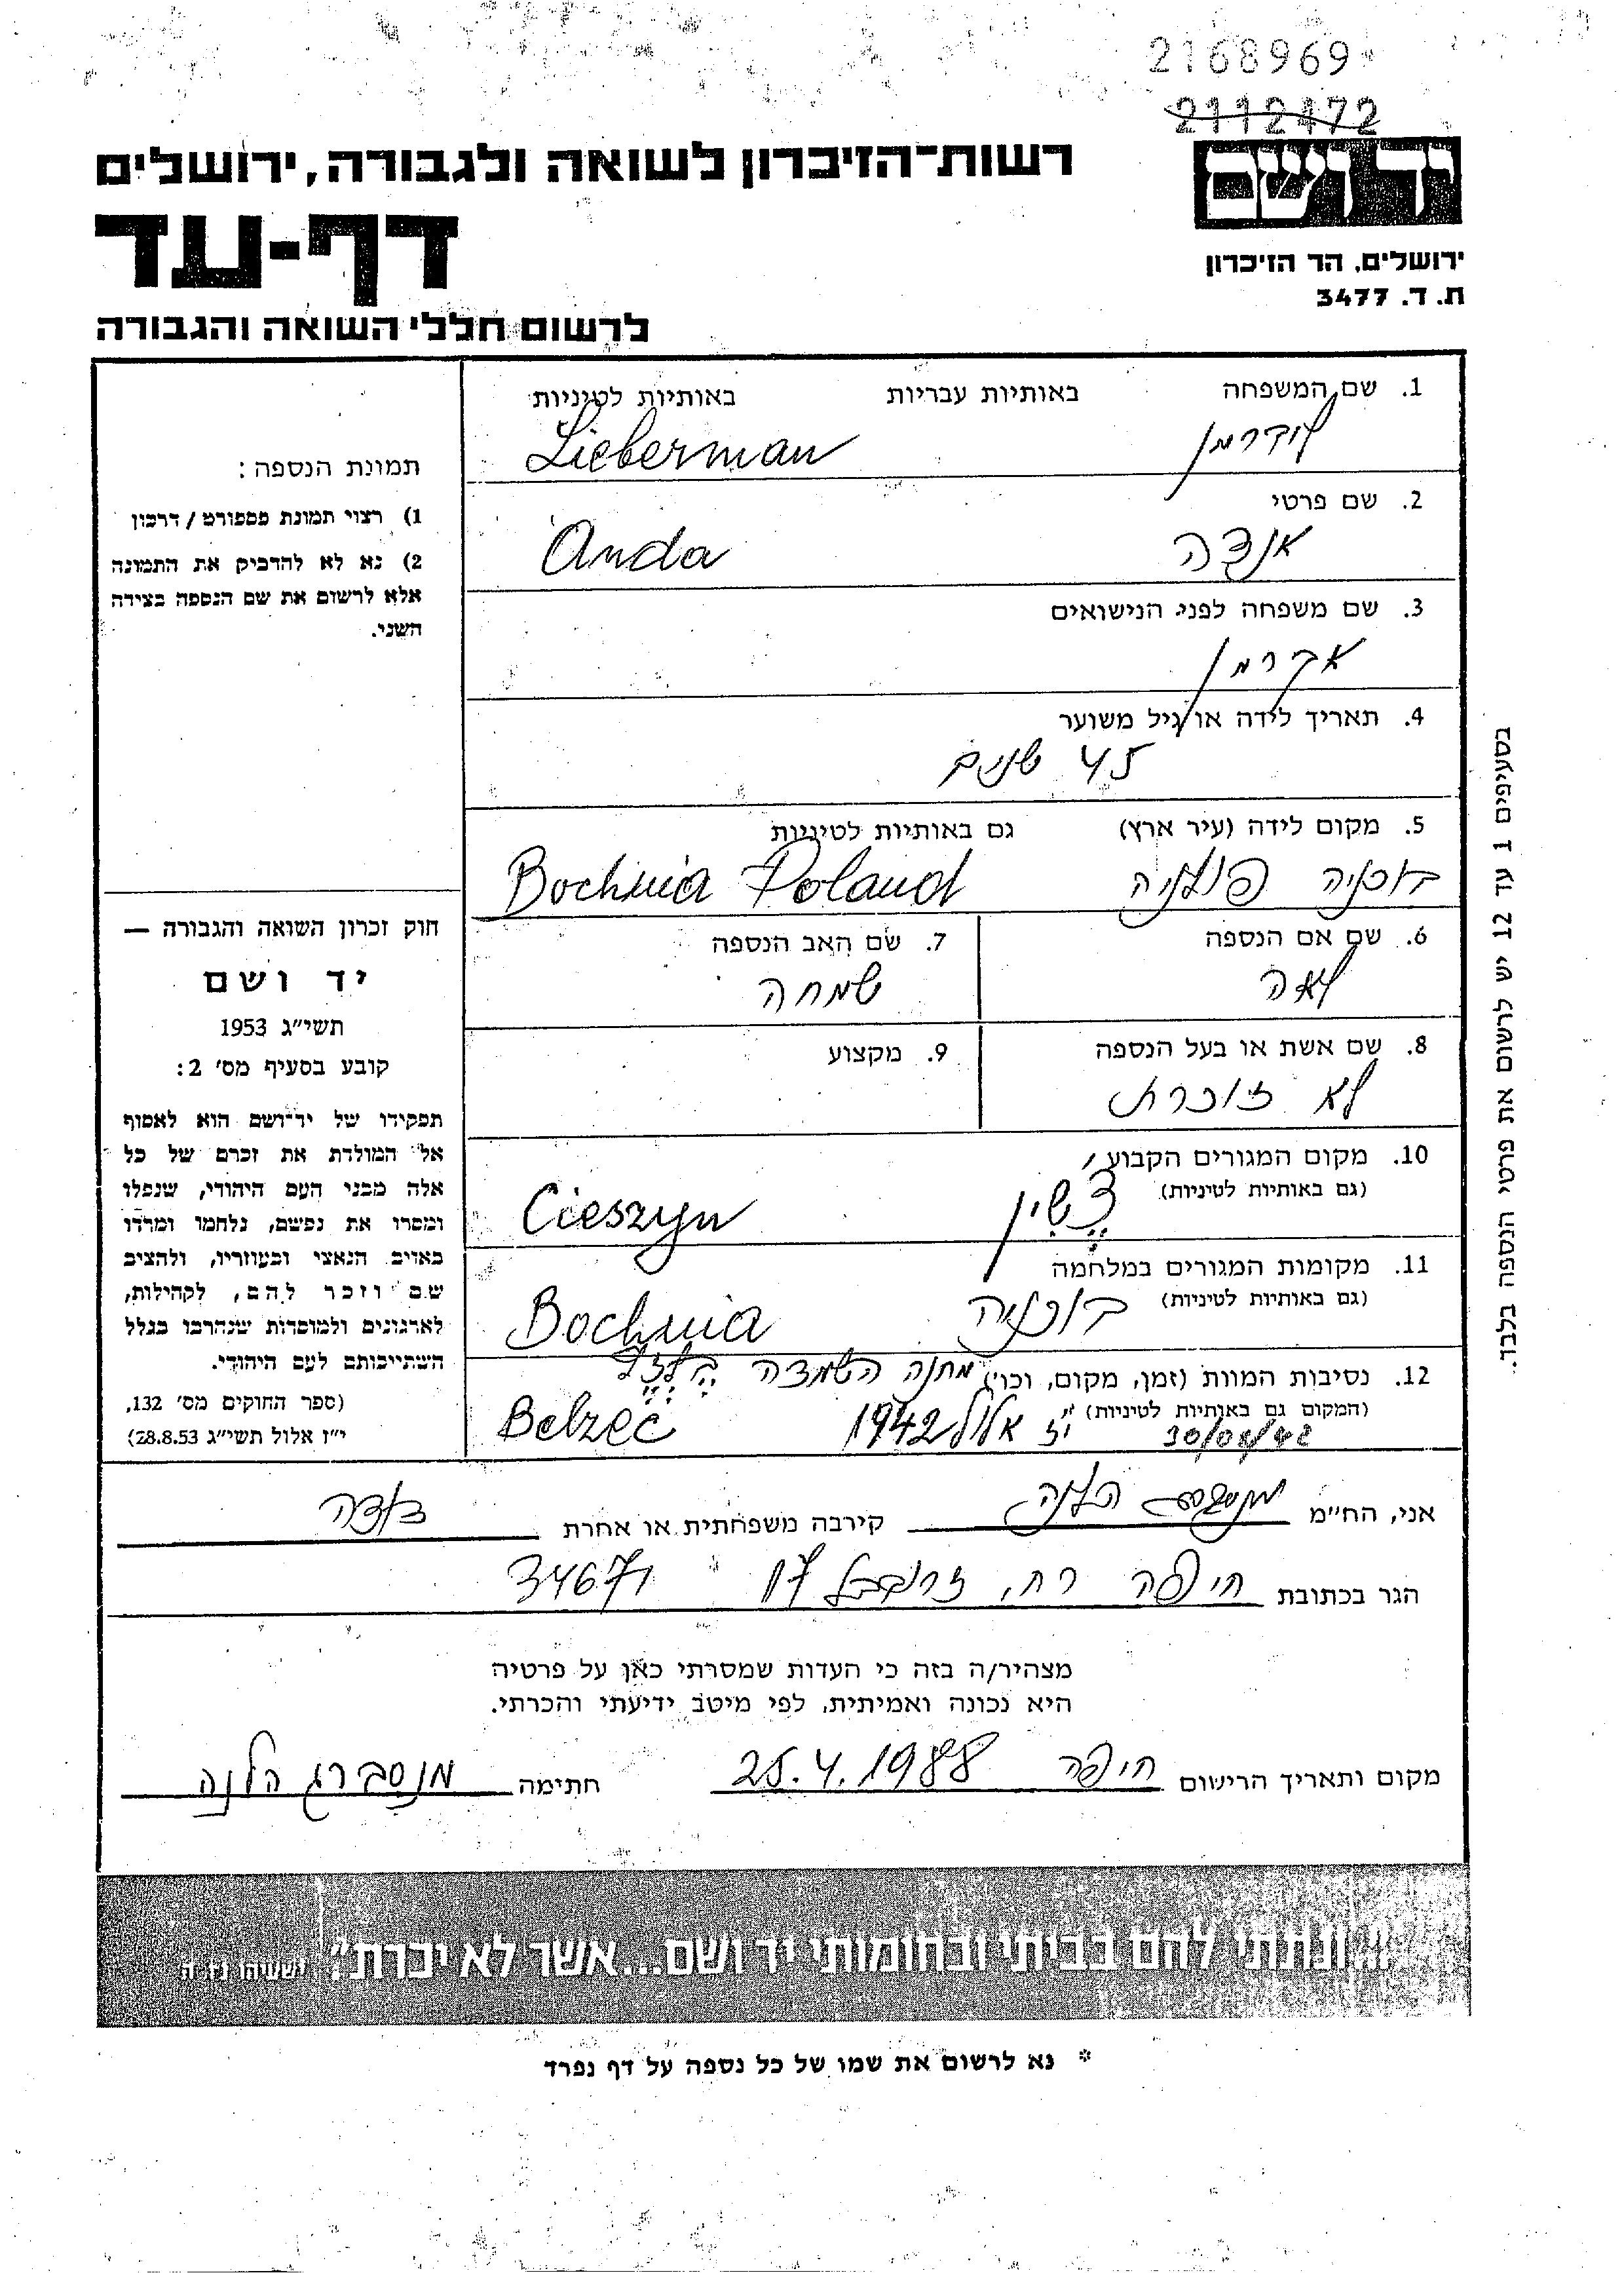 2168969
2112472
יד ושם
רשות-הזיכרון לשואה ולגבורה, ירושלים
דף-עד
ירושלים, הר הזיכרון
ת. ד. 3477
לרשום חללי השואה והגבורה
1. שם המשפחה באותיות עבריות באותיות לטיניות
ליברמן Lieberman
2. שם פרטי
אנדה Anda
3. שם משפחה לפני הנישואים
אברמן
4. תאריך לידה או גיל משוער
45 שנים
5. מקום לידה (עיר ארץ) גם באותיות לטיניות
בוכניה פולניה Bochnia Poland
6. שם אם הנספה 7. שם האב הנספה
לאה שמחה
8. שם אשת או בעל הנספה 9. מקצוע
לא זוכרת
10. מקום המגורים הקבוע
(גם באותיות לטיניות) צ'שין Cieszyn
11. מקומות המגורים במלחמה
(גם באותיות לטיניות) בוכניה Bochnia
12. נסיבות המוות (זמן, מקום, וכו') מחנה השמדה בלזץ
(המקום גם באותיות לטיניות) יז אלול 1942 Belzec
30/08/42
תמונת הנספה:
1) רצוי תמונת פספורט / דרכון
2) נא לא להדביק את התמונה
אלא לרשום את שם הנספה בצידה
השני.
חוק זכרון השואה והגבורה —
יד ושם
תשי"ג 1953
קובע בסעיף מס' 2:
תפקידו של יד-ושם הוא לאסוף
אל המולדת את זכרם של כל
אלה מבני העם היהודי, שנפלו
ומסרו את נפשם, נלחמו ומרדו
באויב הנאצי ובעוזריו, ולהציב
שם וזכר להם, לקהילות,
לארגונים ולמוסדות שנהרבו בגלל
השתייכותם לעם היהודי.
(ספר החוקים מס' 132,
י"ז אלול תשי"ג 28.8.53)
בסעיפים 1 עד 12 יש לרשום את פרטי הנספה בלבד.
אני, הח"מ מנסברג הלנה קירבה משפחתית או אחרת דודה
הגר בכתובת חיפה רח' זרובבל 17 34671
מצהיר/ה בזה כי העדות שמסרתי כאן על פרטיה
היא נכונה ואמיתית, לפי מיטב ידיעתי והכרתי.
מקום ותאריך הרישום חיפה 25.4.1988 חתימה מנסברג הלנה
"ונתתי להם בביתי ובחומותי יד ושם...אשר לא יכרת" ישעיהו נו ה
* נא לרשום את שמו של כל נספה על דף נפרד